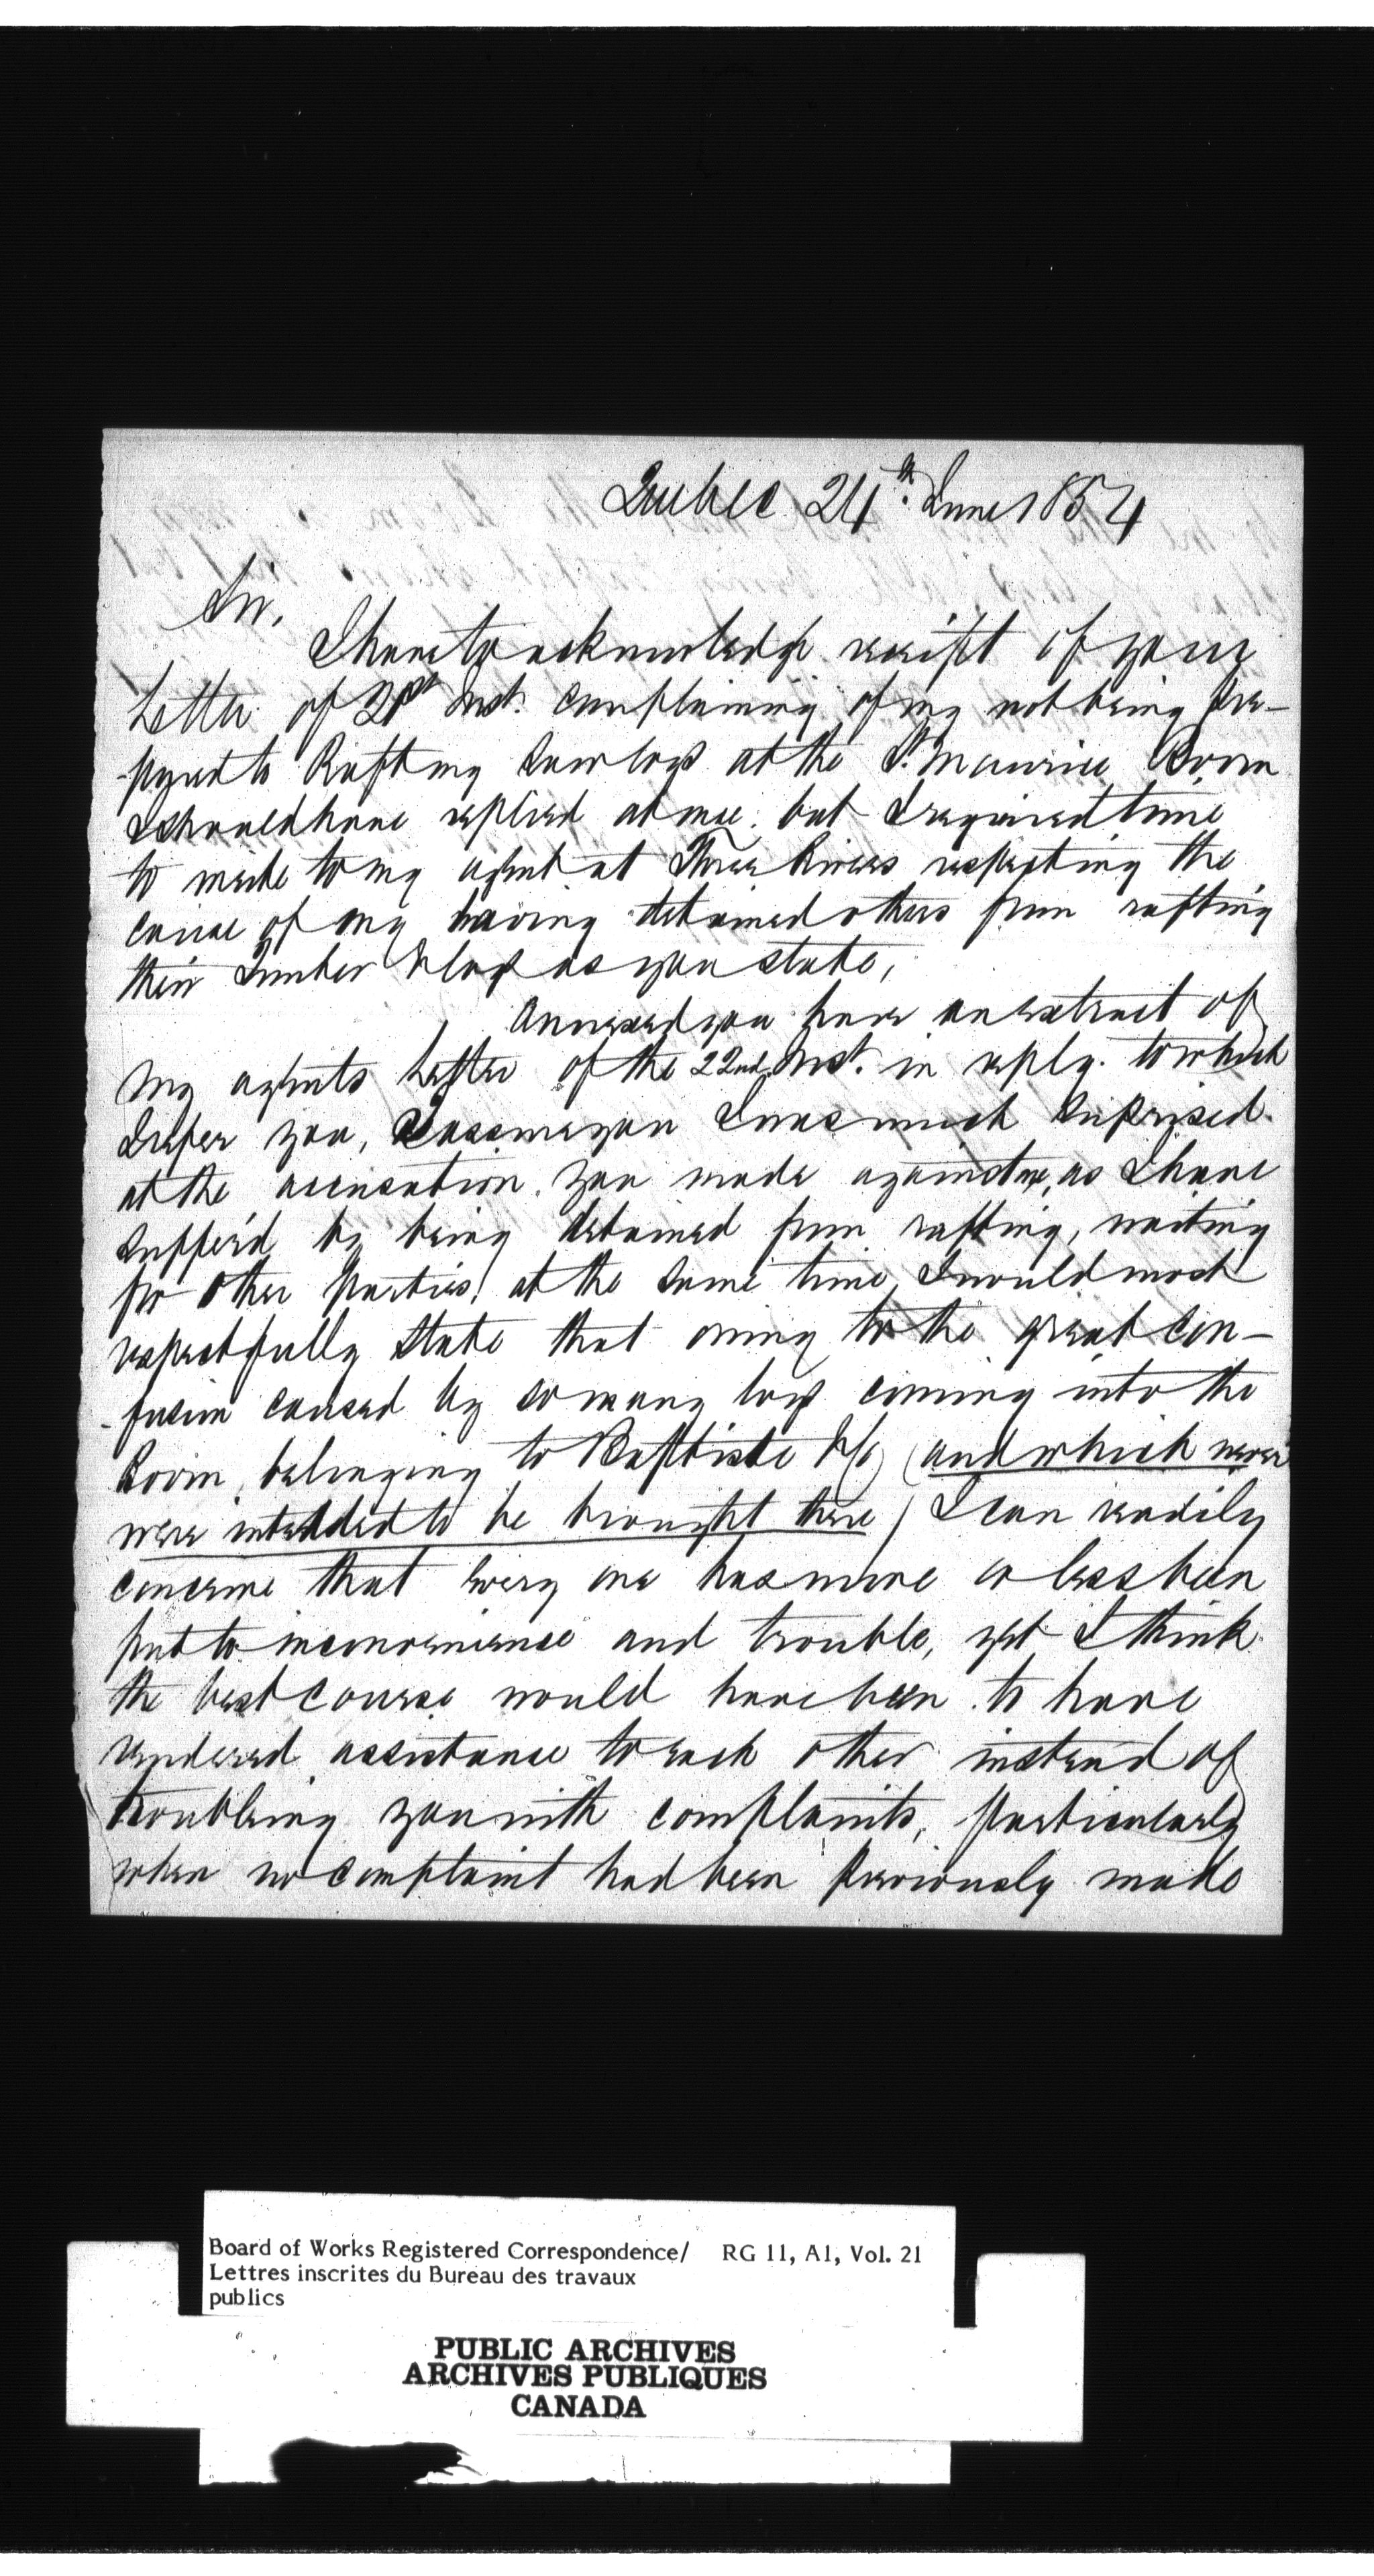 Quebec 24th. June 1854
Sir,
I have to acknowledge receipt of your
Letter of 21st Inst. complaining of my not being pre-
-pared to Raft my Saw logs at the St. Maurice Boom
I should have replied at once. but I required time
to write to my agent at Three Rivers respecting the
cause of my having detained others from rafting
their Timber & logs as you state,
Annexed you have an extract of
my agents Letter of the 22nd Inst. in reply. to which
I refer you, I assure you I was much surprised
at the accusation you made against me, as I have
suffer'd by being detained from rafting, waiting
for other parties, at the same time, I would most
respectfully state that owing to the great con-
-fusion caused by so many logs coming into the
Boom, belonging to Baptiste & Co (and which never
were intended to be brought there) I can readily
conceive that every one has more or less been
put to inconvenience and trouble, yet I think
the best course would have been to have
rendered assistance to each other instead of
troubling you with complaints, particularly
when no complaint had been previously made
Board of Works Registered Correspondence/ RG 11, A1, Vol. 21
Lettres inscrites du Bureau des travaux
publics
PUBLIC ARCHIVES
ARCHIVES PUBLIQUES
CANADA